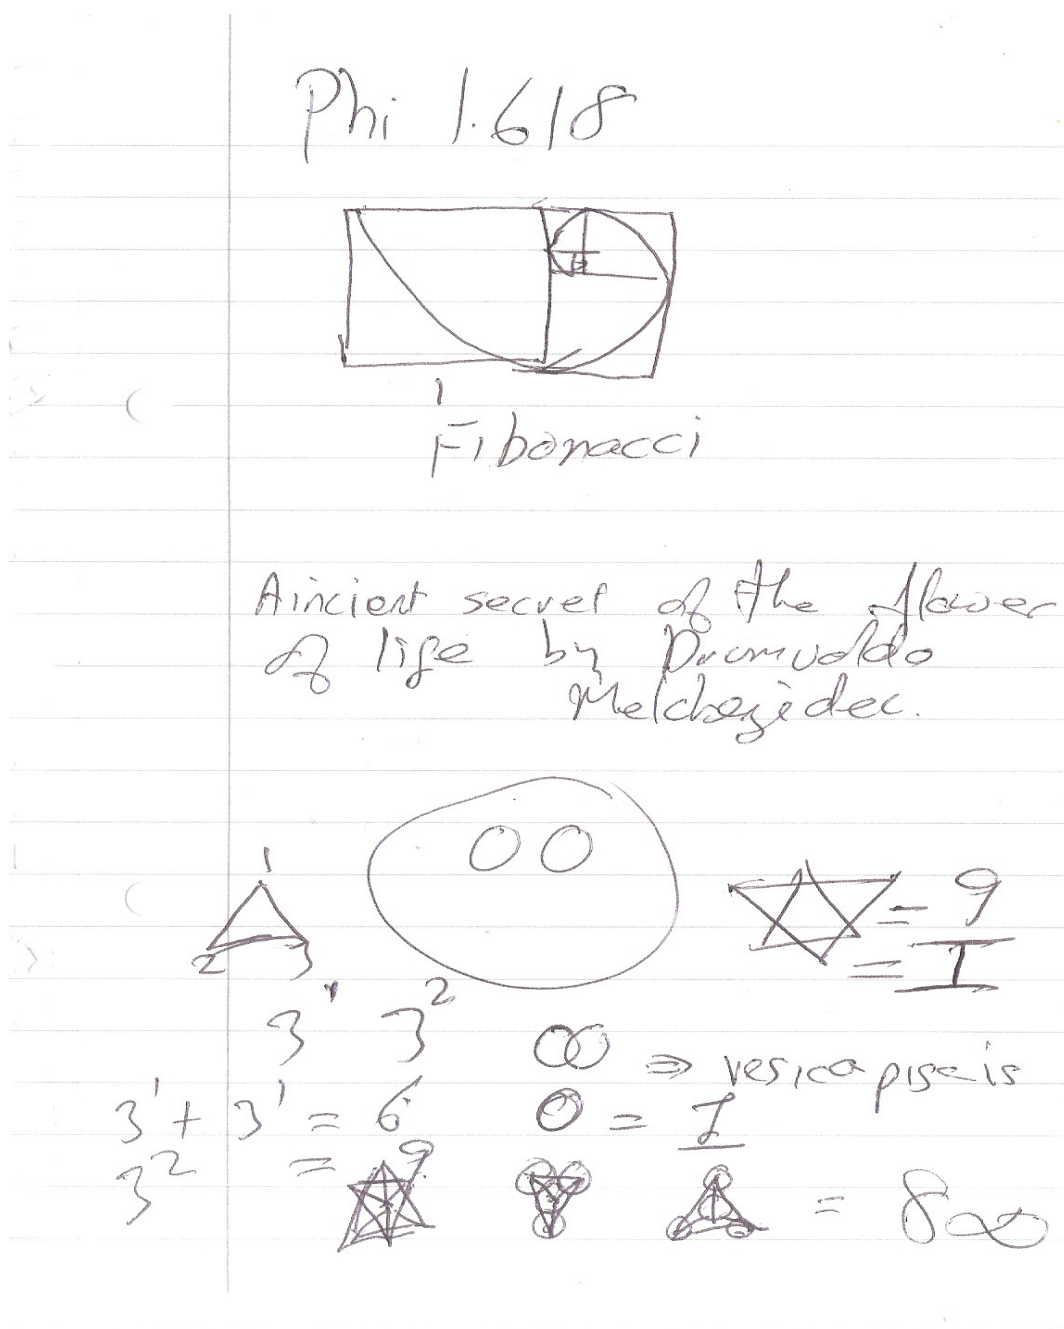 Phi 1.618
Fibonacci
Aincient secret of the flower
of life by Drumvaldo
Melchezidec.
1
2 3
= 9
= I
3¹ 3²
⇒ vesica piscis
3¹ + 3¹ = 6
0 = 1
3² = 9
= 8∞